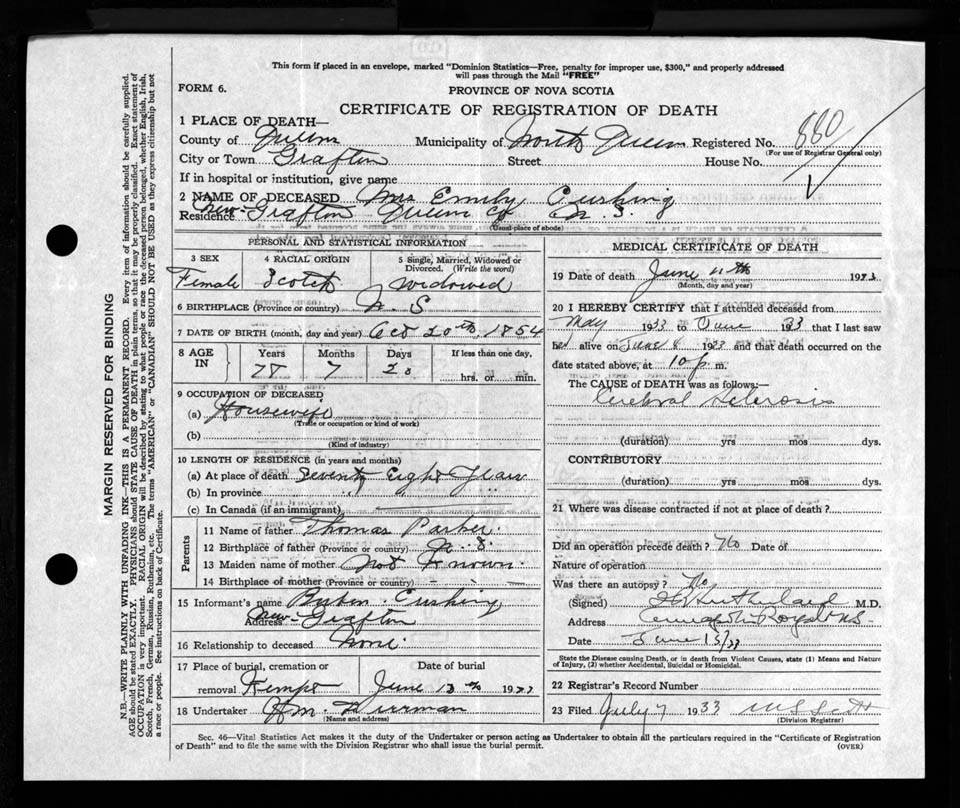 This form if placed in an envelope, marked "Dominion Statistics—Free, penalty for improper use, $300," and properly addressed
will pass through the Mail "FREE"
FORM 6.
PROVINCE OF NOVA SCOTIA
CERTIFICATE OF REGISTRATION OF DEATH
1 PLACE OF DEATH—
County of Queens Municipality of North Queens Registered No. 880
(For use of Registrar General only)
City or Town Grafton Street House No.
If in hospital or institution, give name
2 NAME OF DECEASED Mrs Emily Cushing
Residence New Grafton Queens Co N. S.
(Usual place of abode)
PERSONAL AND STATISTICAL INFORMATION
3 SEX
Female
4 RACIAL ORIGIN
Scotch
5 Single, Married, Widowed or
Divorced. (Write the word)
widowed
6 BIRTHPLACE (Province or country) N. S
7 DATE OF BIRTH (month, day and year) Oct 20th 1854
8 AGE
IN
Years
78
Months
7
Days
20
If less than one day,
hrs. or min.
9 OCCUPATION OF DECEASED
(a) Housewife
(Trade or occupation or kind of work)
(b)
(Kind of industry)
10 LENGTH OF RESIDENCE (in years and months)
(a) At place of death Seventy Eight Years
(b) In province " "
(c) In Canada (if an immigrant)
Parents
11 Name of father Thomas Parker
12 Birthplace of father (Province or country) N. S.
13 Maiden name of mother Not Known
14 Birthplace of mother (Province or country) - -
15 Informant's name Cushing
Address New Grafton
16 Relationship to deceased None
17 Place of burial, cremation or
removal Kempt
Date of burial
June 13th 1933
18 Undertaker Wm.
(Name and address)
MEDICAL CERTIFICATE OF DEATH
19 Date of death June 11th 1933
(Month, day and year)
20 I HEREBY CERTIFY that I attended deceased from
May 1933 to June 1933 that I last saw
her alive on June 8 1933 and that death occurred on the
date stated above, at 10 p. m.
The CAUSE of DEATH was as follows:—
Cerebral Sclerosis
(duration) yrs mos dys.
CONTRIBUTORY
(duration) yrs mos dys.
21 Where was disease contracted if not at place of death?
Did an operation precede death? No Date of
Nature of operation
Was there an autopsy? No
(Signed) M.D.
Address Annapolis Royal N.S.
Date June 13/33
State the Disease causing Death, or in death from Violent Causes, state (1) Means and Nature
of Injury, (2) whether Accidental, Suicidal or Homicidal.
22 Registrar's Record Number
23 Filed July 7 1933
(Division Registrar)
Sec. 46—Vital Statistics Act makes it the duty of the Undertaker or person acting as Undertaker to obtain all the particulars required in the "Certificate of Registration
of Death" and to file the same with the Division Registrar who shall issue the burial permit.
(OVER)
MARGIN RESERVED FOR BINDING
N.B.—WRITE PLAINLY WITH UNFADING INK—THIS IS A PERMANENT RECORD. Every item of information should be carefully supplied.
AGE should be stated EXACTLY. PHYSICIANS should STATE CAUSE OF DEATH in plain terms, so that it may be properly classified. Exact statement of
OCCUPATION is very important. RACIAL ORIGIN will be described by stating to what people or race the deceased person belonged, whether English, Irish,
Scotch, French, German, Russian, Ruthenian, etc. The terms "AMERICAN" or "CANADIAN" SHOULD NOT BE USED as they express citizenship but not
a race or people. See instructions on back of Certificate.